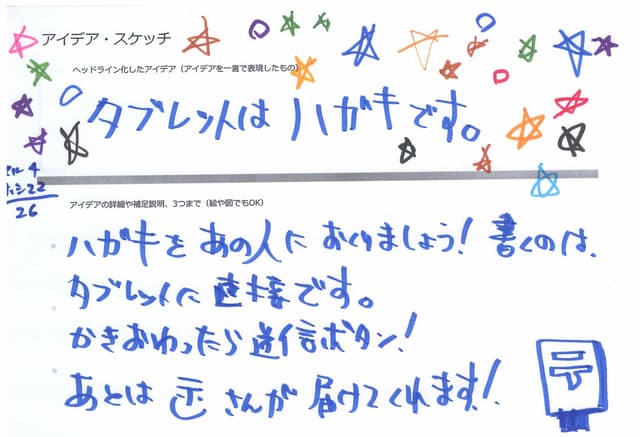 アイデア・スケッチ
ヘッドライン化したアイデア（アイデアを一言で表現したもの）
タブレットは ハガキです。
4
22
26
アイデアの詳細や補足説明、3つまで（絵や図でもOK）
ハガキを あの人に おくりましょう! 書くのは、
タブレットに 直接です。
かきおわったら 送信ボタン!
あとは 〒 さんが 届けてくれます!
〒